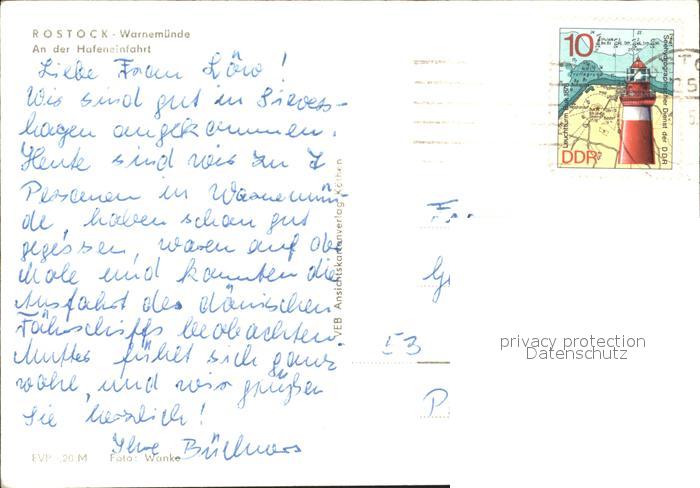 ROSTOCK - Warnemünde
An der Hafeneinfahrt
Liebe Frau Löw!
Wir sind gut in Sievers-
hagen angekommen.
Heute sind wir zu 7
Personen in Warnemün-
de, haben schon gut
gegessen, waren auf der
Mole und konnten die
Ausfahrt des dänischen
Fährschiffs beobachten.
Mutter fühlt sich ganz
wohl, und wir grüßen
Sie herzlich!
Ihre
EVP -,20 M Foto: Wanke
VEB Ansichtskartenverlag Köthen
10
Seehydrographischer Dienst der DDR
Leuchtturm
DDR
53
privacy protection
Datenschutz